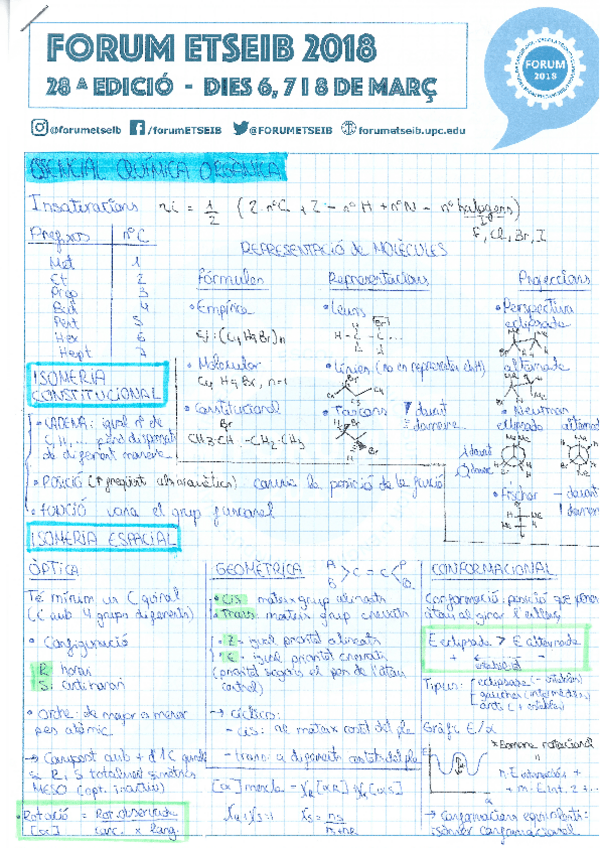 FORUM ETSEIB 2018
28ª EDICIÓ - DIES 6, 7 I 8 DE MARÇ
FORUM
2018
@forumetseib /forumETSEIB @FORUMETSEIB forumetseib.upc.edu
ESSENCIAL QUÍMICA ORGÀNICA
Insaturacions ni = 1/2 (2·nºC + 2 - nºH + nºN - nºhalògens)
F, Cl, Br, I
Prefixos nºC
Met 1
Et 2
Prop 3
But 4
Pent 5
Hex 6
Hept 7
REPRESENTACIÓ de MOLÈCULES
Fórmules
• Empírica
Ej: (C4H9Br)n
• Molecular
C4H9Br, n=1
• Constitucional
CH3-CH-CH2-CH3
Br
Representacions
• Lewis
• Línies (no es representen els H)
• Falcons davant
darrere
Projeccions
• Perspectiva
eclipsada
alternada
• Newman
eclipsada alternada
davant
darrere
• Fischer - davant
darrere
ISOMERIA
CONSTITUCIONAL
• CADENA: igual nº de
C, H, ... però disposats
de diferent manera
• POSICIÓ canvia la posició de la funció
• FUNCIÓ varia el grup funcional
ISOMERIA ESPACIAL
ÒPTICA
Té mínim un C quiral
(C amb 4 grups diferents)
• Configuració
R: horari
S: antihorari
• Ordre: de major a menor
pes atòmic
→ Compost amb + d'1C quiral
si R, S totalment simètrics
MESO (òpt. inactiu)
• Rotació [α] = Rot. observada / conc. × long.
GEOMÈTRICA
A
B >C=C< P
Q
• Cis: mateix grup alineats
• Trans: mateix grup creuats
• Z = igual prioritat alineats
• E = igual prioritat creuats
(prioritat segons el pes de l'àtom
central)
→ cíclics:
- cis: al mateix costat del ple
- trans: a diferents costats del ple
[α] mescla = χR[αR] + χS[αS]
χR + χS = 1 χS = nS / nS + nR
CONFORMACIONAL
Conformació: posició que prenen
àtoms al girar l'enllaç
E eclipsada > E alternada
+ estabilitat -
Tipus: eclipsada (- estable)
gauche (intermèdia)
anti (+ estable)
Gràfic E/α
* Barrera rotacional
E
α
→ Conformacions equivalents:
isòmer conformacional